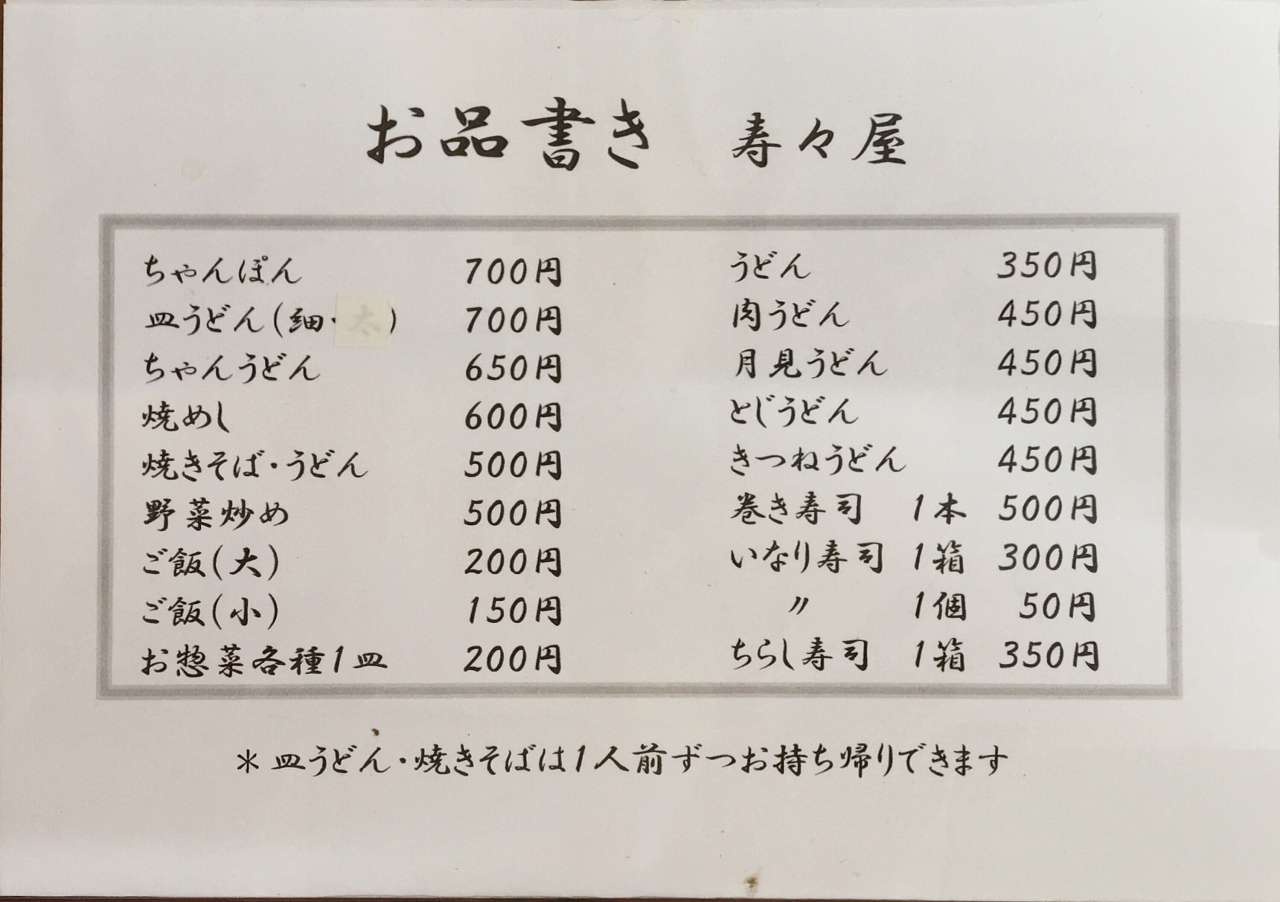 お品書き 寿々屋
ちゃんぽん 700円
皿うどん(細・太) 700円
ちゃんうどん 650円
焼めし 600円
焼きそば・うどん 500円
野菜炒め 500円
ご飯(大) 200円
ご飯(小) 150円
お惣菜各種1皿 200円
うどん 350円
肉うどん 450円
月見うどん 450円
とじうどん 450円
きつねうどん 450円
巻き寿司 1本 500円
いなり寿司 1箱 300円
〃 1個 50円
ちらし寿司 1箱 350円
＊皿うどん・焼きそばは1人前ずつお持ち帰りできます